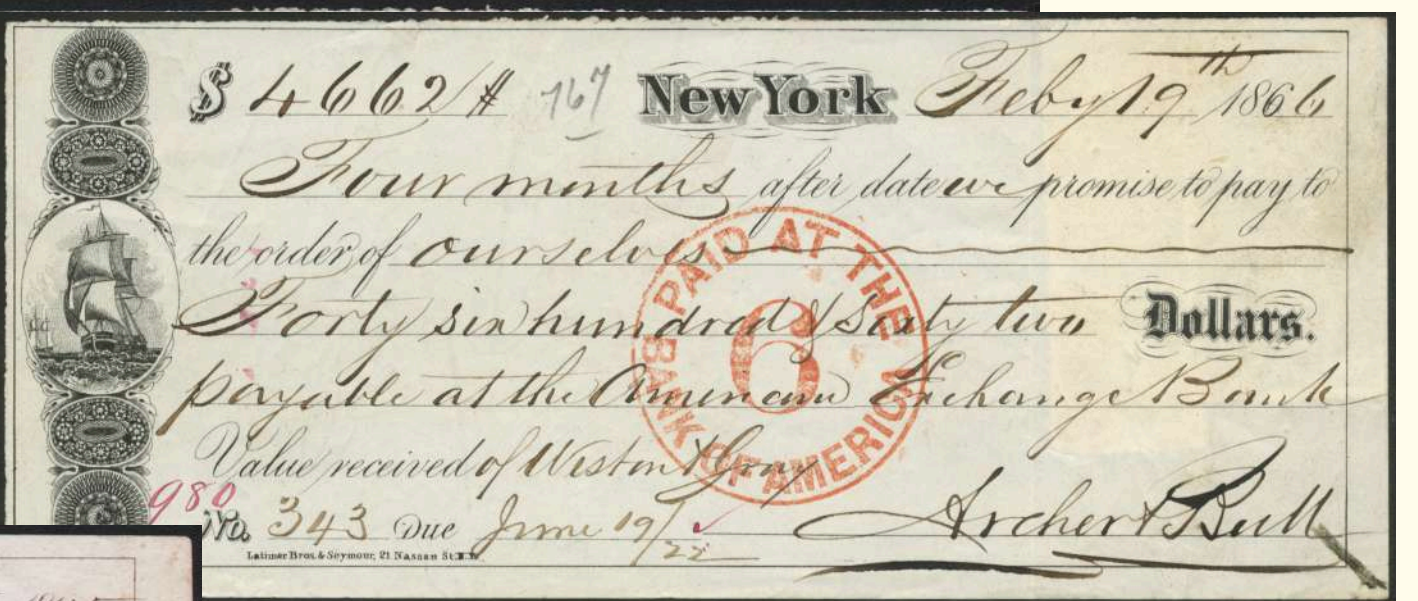 $ 4662 # 767 New York Feby 19th 1866
Four months after date we promise to pay to
the order of ourselves
Forty six hundred & Sixty two Dollars.
payable at the American Exchange Bank
Value received of Weston & Gray
980
No. 343 Due June 19/22 Archer & Bull
Latimer Bros. & Seymour, 21 Nassau St. N.Y.
PAID AT THE
6
BANK OF AMERICA